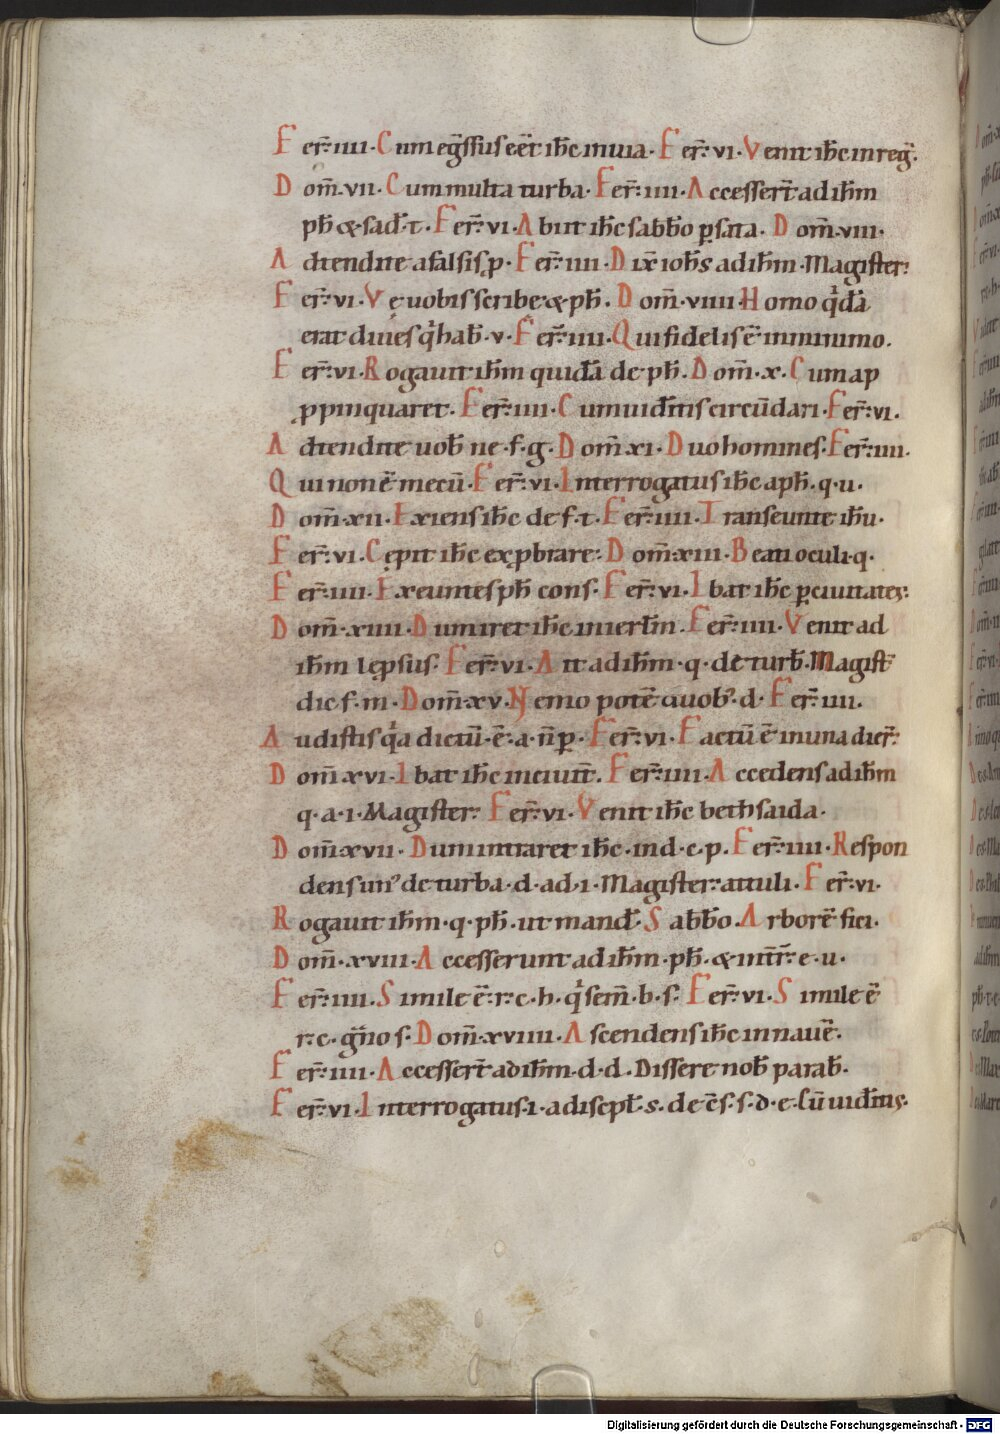 Fer̄. iiii. Cum eg̃ssus eēt ih̄c in uia. Fer̄. vi. Venit ih̄c in reg̃.
Dom̄. vii. Cum multa turba. Fer̄. iiii. Accesser̄t ad ih̄m
ph̄ & sad̄. t. Fer̄. vi. Abiit ih̄c sabb̄o p̱ sata. Dom̄. viii.
Adtendite a falsis ꝓ. Fer̄. iiii. Dix̄ ioh̄s ad ih̄m. Magister.
Fer̄. vi. Vę uobis scribe. & ph̄. Dom̄. viiii. Homo qͥdā
erat diues qͥ hab̄. v. Fer̄. iiii. Qui fidelis ē in minimo.
Fer̄. vi. Rogauit ih̄m quidā de ph̄. Dom̄. x. Cum ap
ꝓpinquaret. Fer̄. iiii. Cum uid̄itis circūdari. Fer̄. vi.
Adtendite uob̄ ne. f. g. Dom̄. xi. Duo homines. Fer̄. iiii.
Qui non ē mecū. Fer̄. vi. Interrogatus ih̄c a ph̄. q. u.
Dom̄. xii. Exiens ih̄c de f. t. Fer̄. iiii. Transeunte ih̄u.
Fer̄. vi. Cępit ih̄c exꝓbrare. Dom̄. xiii. Beati oculi. q.
Fer̄. iiii. Exeuntes ph̄ cons. Fer̄. vi. Ibat ih̄c ꝑ ciuitates.
Dom̄. xiiii. Dum iret ih̄c in ierl̄m. Fer̄. iiii. Venit ad
ih̄m lep̱sus. Fer̄. vi. Ait ad ih̄m. q. de turb̄. Magist̄
dic f. m. Dom̄. xv. Nemo potē duob᾽. d. Fer̄. iiii.
Audistis qͥa dictū. ē. a. n̄ ꝑ. Fer̄. vi. Factū ē in una dier̄.
Dom̄ xvi. Ibat ih̄c in ciuit̄. Fer̄. iiii. Accedens ad ih̄m
q. a. i. Magister. Fer̄. vi. Venit ih̄c bethsaida.
Dom̄ xvii. Dum intraret ih̄c. in d. c. p. Fer̄. iiii. Respon
dens un᾽ de turba. d. ad. i. Magister. attuli. Fer̄. vi.
Rogauit ih̄m. q. ph̄. ut mand̄. Sabb̄o. Arborē fici.
Dom̄. xviii. Accesserunt ad ih̄m. ph̄. & int̄r̄. e. u.
Fer̄. iiii. Simile ē. r. c. h. qͥ sem̄. b. s. Fer̄. vi. Simile ē
r. c. g̃no s. Dom̄. xviiii. Ascendens ih̄c in nauē.
Fer̄. iiii. Accesser̄t ad ih̄m. d. d. Dissere nob̄ parab̄.
Fer̄. vi. Interrogatus. i. a discipl̄. s. de ēs. s. d. e. Cū uid̄itis.
Digitalisierung gefördert durch die Deutsche Forschungsgemeinschaft - DFG